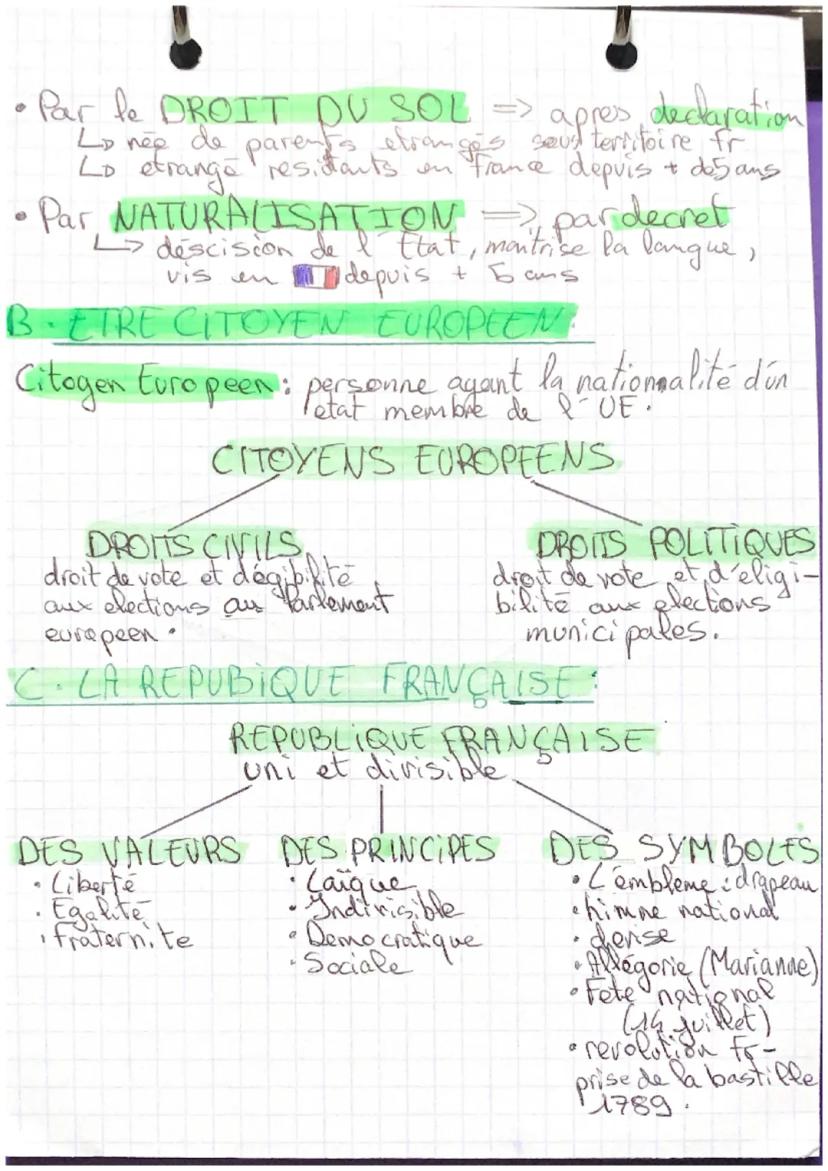 • Par le DROIT DU SOL => apres declaration
↳ née de parents etrangés sous territoire fr
↳ etrangé residants en france depuis + de 5 ans
• Par NATURALISATION => par decret
↳ déscision de l'Etat, maîtrise la langue,
vis en depuis + 5 ans
B. ETRE CITOYEN EUROPEEN:
Citoyen Europeen : personne ayant la nationnalité d'un
etat membre de l'UE.
CITOYENS EUROPEENS
DROITS CIVILS
DROITS POLITIQUES
droit de vote et d'égibilité
aux elections au Parlement
europeen.
droit de vote et d'éligi-
bilité aux elections
municipales.
C. LA REPUBIQUE FRANÇAISE:
REPUBLIQUE FRANÇAISE
uni et divisible
DES VALEURS
• Liberté
• Egalité
• fraternite
DES PRINCIPES
• Laïque
• Indivisible
• Democratique
• Sociale
DES SYMBOLES
• L'embleme : drapeau
• himne national
• devise
• Allégorie (Marianne)
• Fête national
(14 juillet)
• revolution fr -
prise de la bastille
1789.